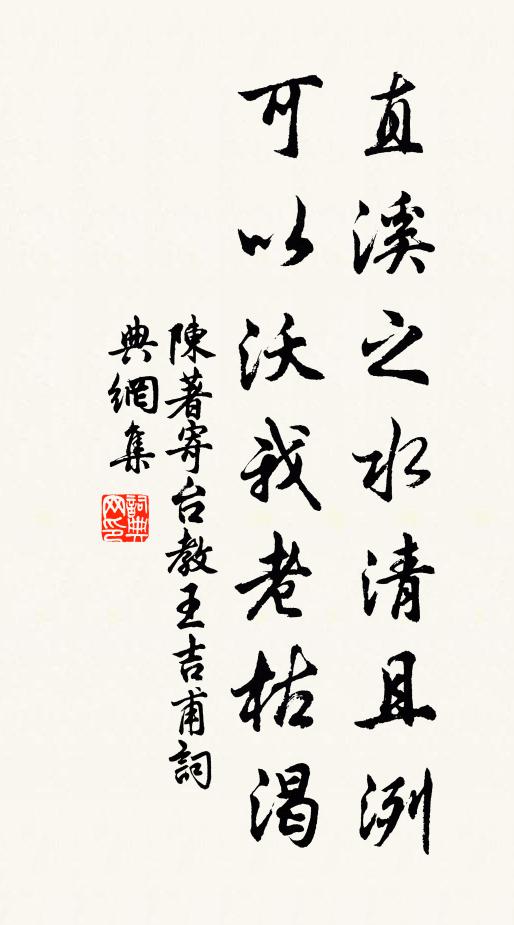 直溪之水清且洌
可以沃我老枯渴
陳著寄台教王吉甫詞
典網集
詞典网印